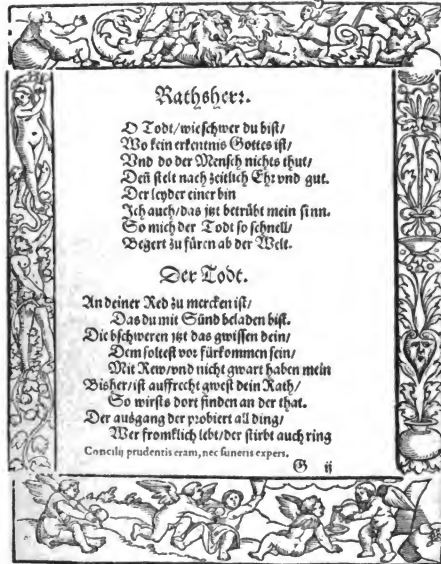 Rathsherr.
O Todt/wie schwer du bist/
Wo kein erkentnis Gottes ist/
Vnd do der Mensch nichts thut/
Deñ stelt nach zeitlich Ehr vnd gut.
Der leyder einer bin
Ich auch/das jtzt betrübt mein sinn.
So mich der Todt so schnell/
Begert zu füren ab der Welt.
Der Todt.
An deiner Red zu mercken ist/
Das du mit Sünd beladen bist.
Die bschweren jtzt das gwissen dein/
Dem soltest vor fürkommen sein/
Mit Rew/vnd nicht gwart haben mein
Bisher/ist auffrecht gwest dein Rath/
So wirsts dort finden an der that.
Der ausgang der probiert all ding/
Wer fromklich lebt/der stirbt auch ring
Concilij prudentis eram, nec funeris expers.
G ij